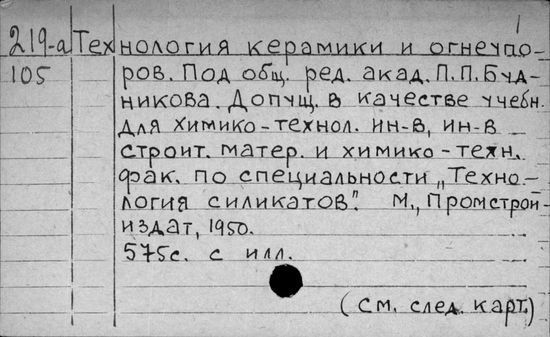 1
219-а Технология керамики и огнеупо-
105 ров. Под общ. ред. акад. П.П. Буд-
никова. Допущ. в качестве учебн.
для химико-технол. ин-в, ин-в
строит. матер. и химико-техн.
фак. по специальности „Техно-
логия силикатов". М., Промстрой-
издат, 1950.
575с. с илл.
(см. след. карт.)